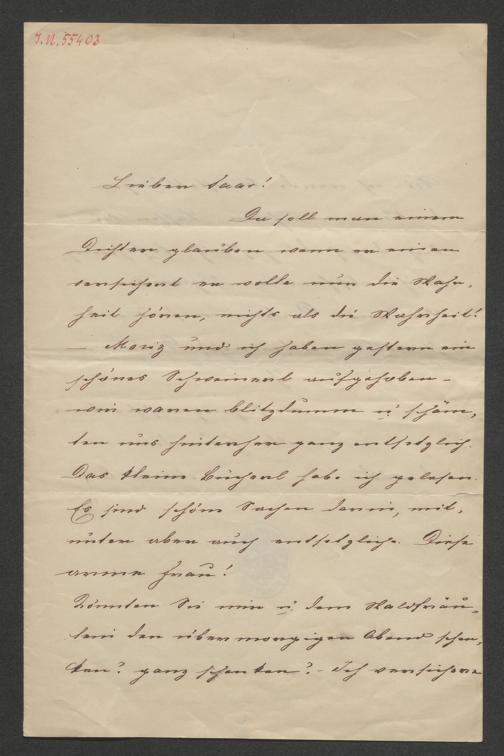 J.N. 55403
Lieber Saar!
Da soll man einem
Dichter glauben wenn er einem
versichert er wolle nur die Wahr-
heit hören, nichts als die Wahrheit!
– Moriz und ich haben gestern ein
schönes Schweinerl aufgehoben –
wir waren blitzdumm u schäm-
ten uns hinterher ganz entsetzlich.
Das kleine Bücherl habe ich gelesen.
Es sind schöne Sachen darin, mit-
unter aber auch entsetzliche. Diese
arme Frau!
Könnten Sie mir u dem Waldfräu-
lein den übermorgigen Abend schen-
ken? ganz schenken? – Ich versichere